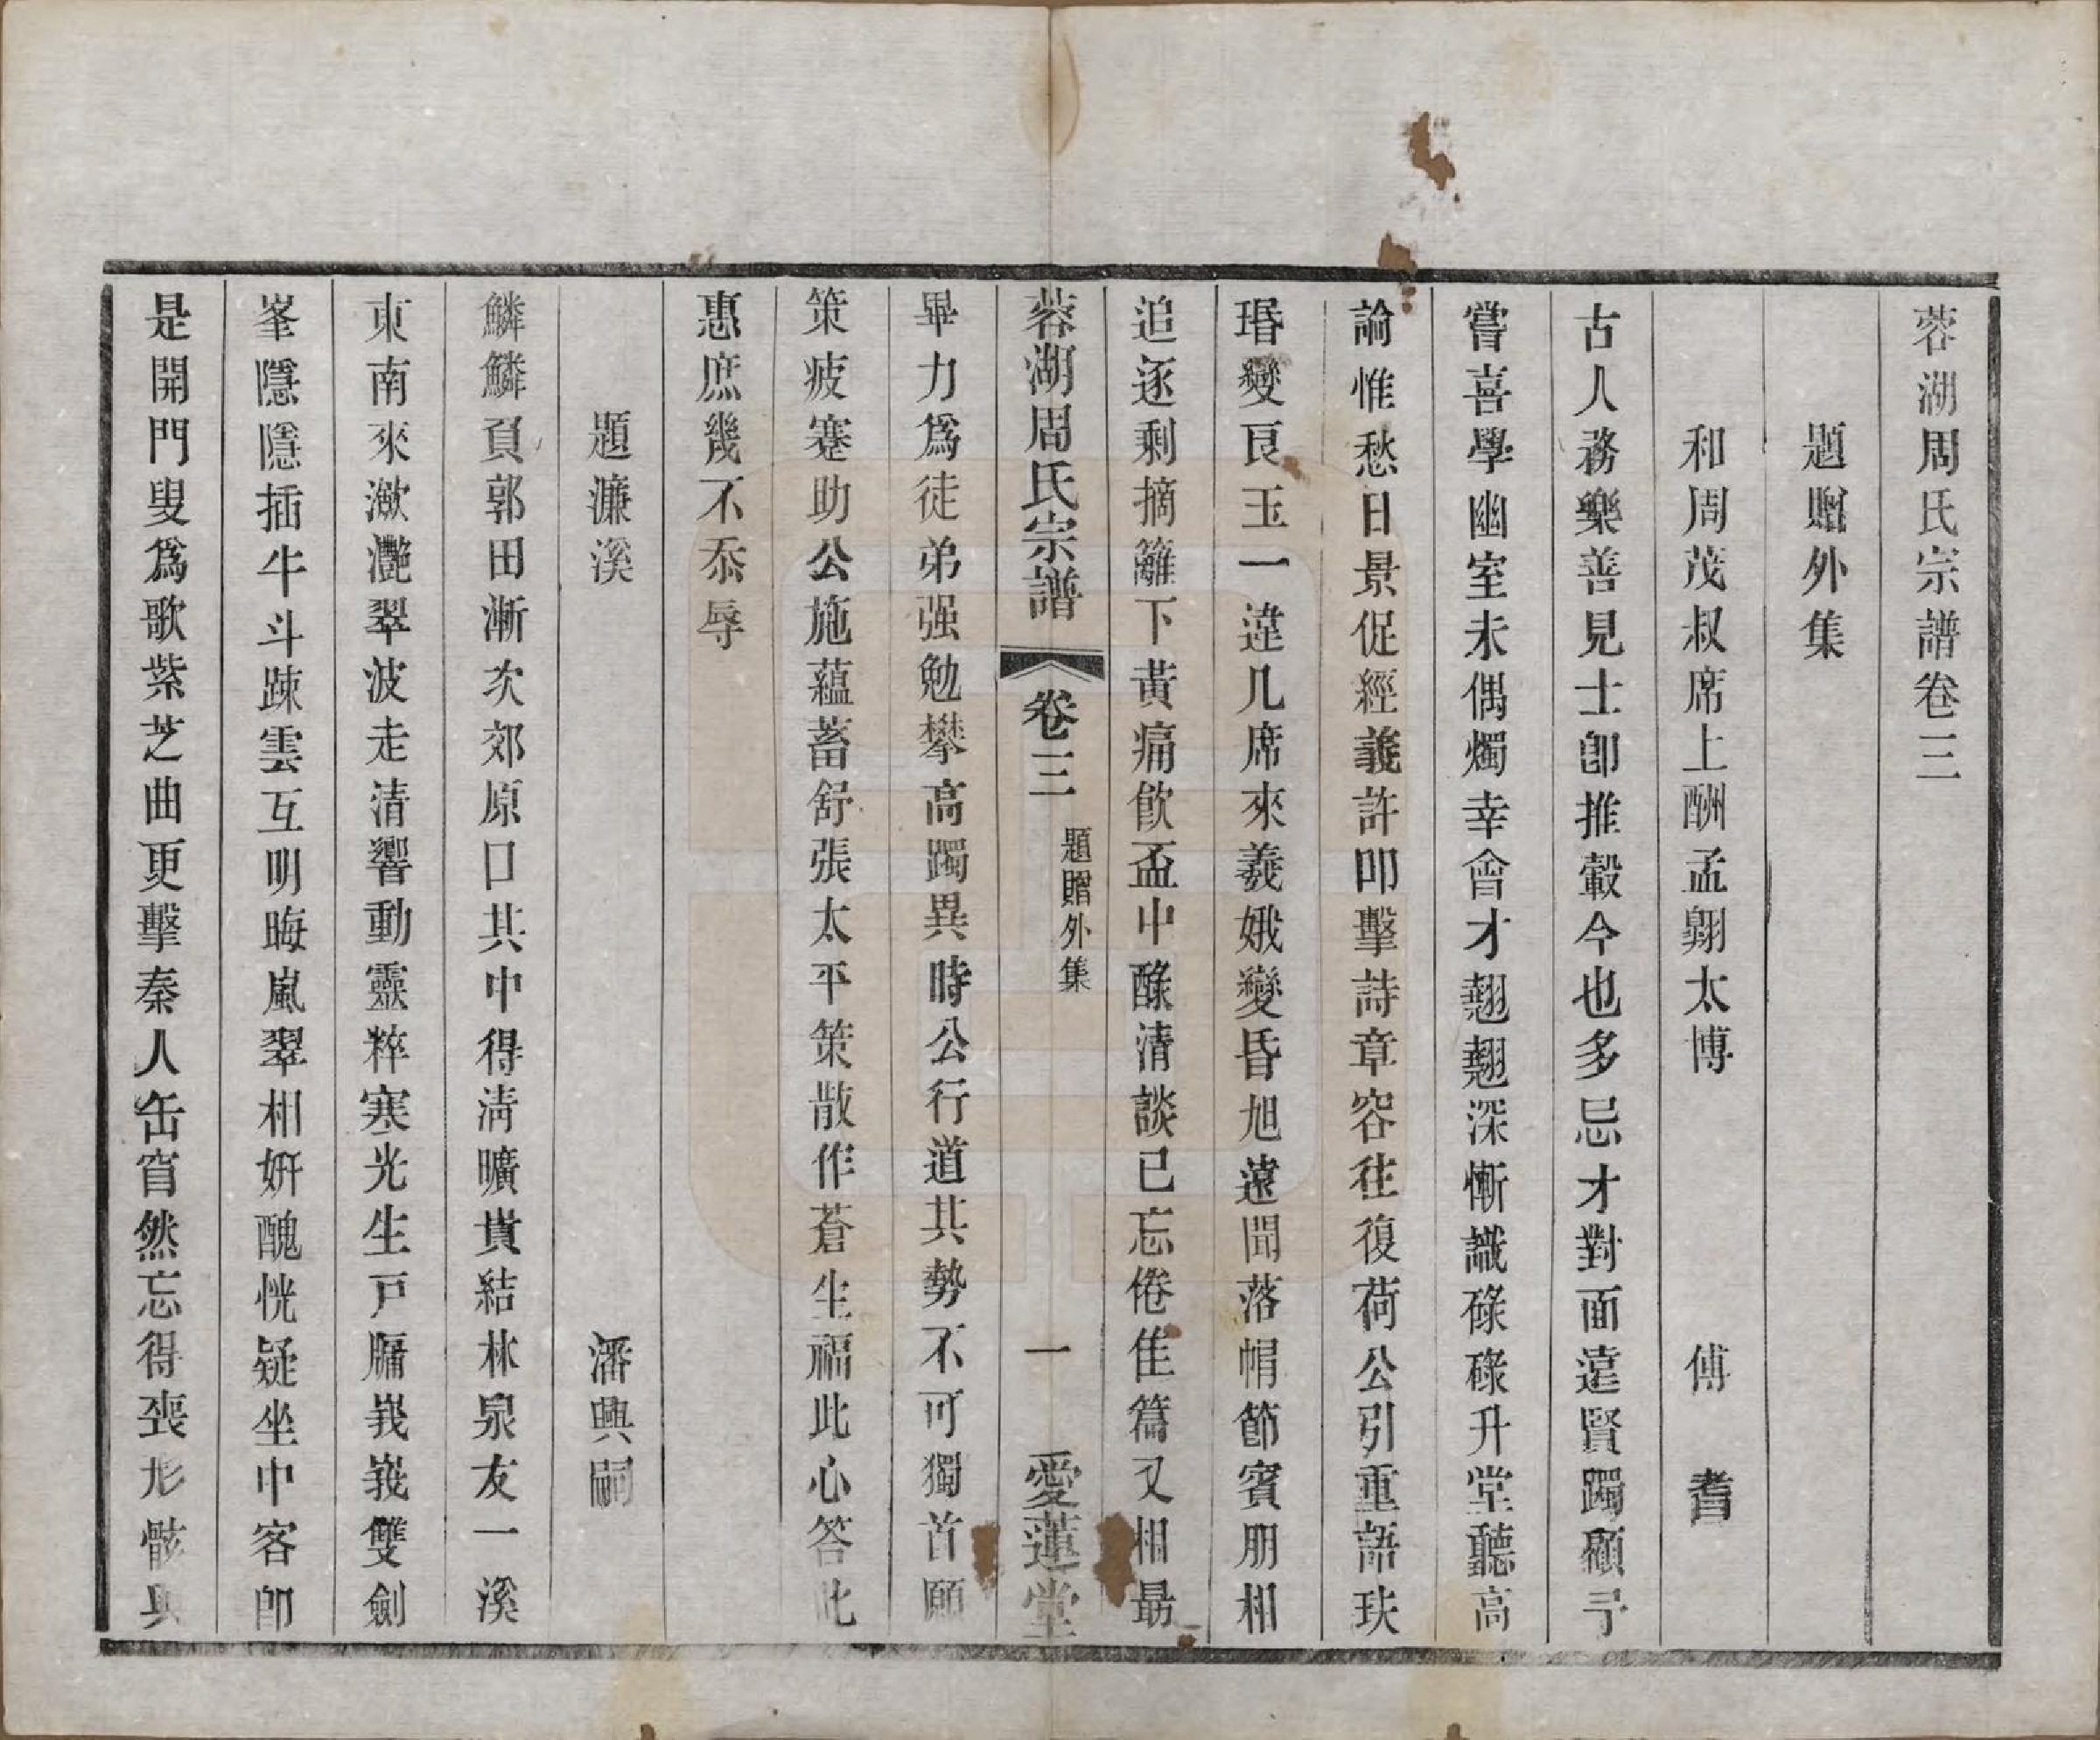 蓉湖周氏宗譜卷三
題贈外集
和周茂叔席上酬孟翺太博 傅耆
古人務樂善見士卽推轂今也多忌才對面遠賢躅顧予
嘗喜學幽室未偶燭幸會才翹翹深慚讖碌碌升堂聽高
論惟愁日景促經義許叩擊詩章容往復荷公引重語玞
瑉變良玉一違几席來羲娥變昏旭遠聞落帽節賓朋相
追逐剩摘籬下黃痛飮盃中醁清談已忘倦佳篇又相勗
蓉湖周氏宗譜 卷三 題贈外集 一 愛蓮堂
畢力爲徒弟强勉攀高躅異時公行道其勢不可獨首願
策疲蹇助公施蘊蓄舒張太平策散作蒼生福此心答此
惠庶幾不忝辱
題濂溪 潘興嗣
鱗鱗負郭田漸次郊原口其中得淸曠貴結林泉友一溪
東南來瀲灔翠波走清響動靈粹寒光生戸牖峩峩雙劍
峯隱隱插牛斗踈雲互明晦嵐翠相妍醜恍疑坐中客卽
是開門叟爲歌紫芝曲更擊秦人缶窅然忘得喪形骸與